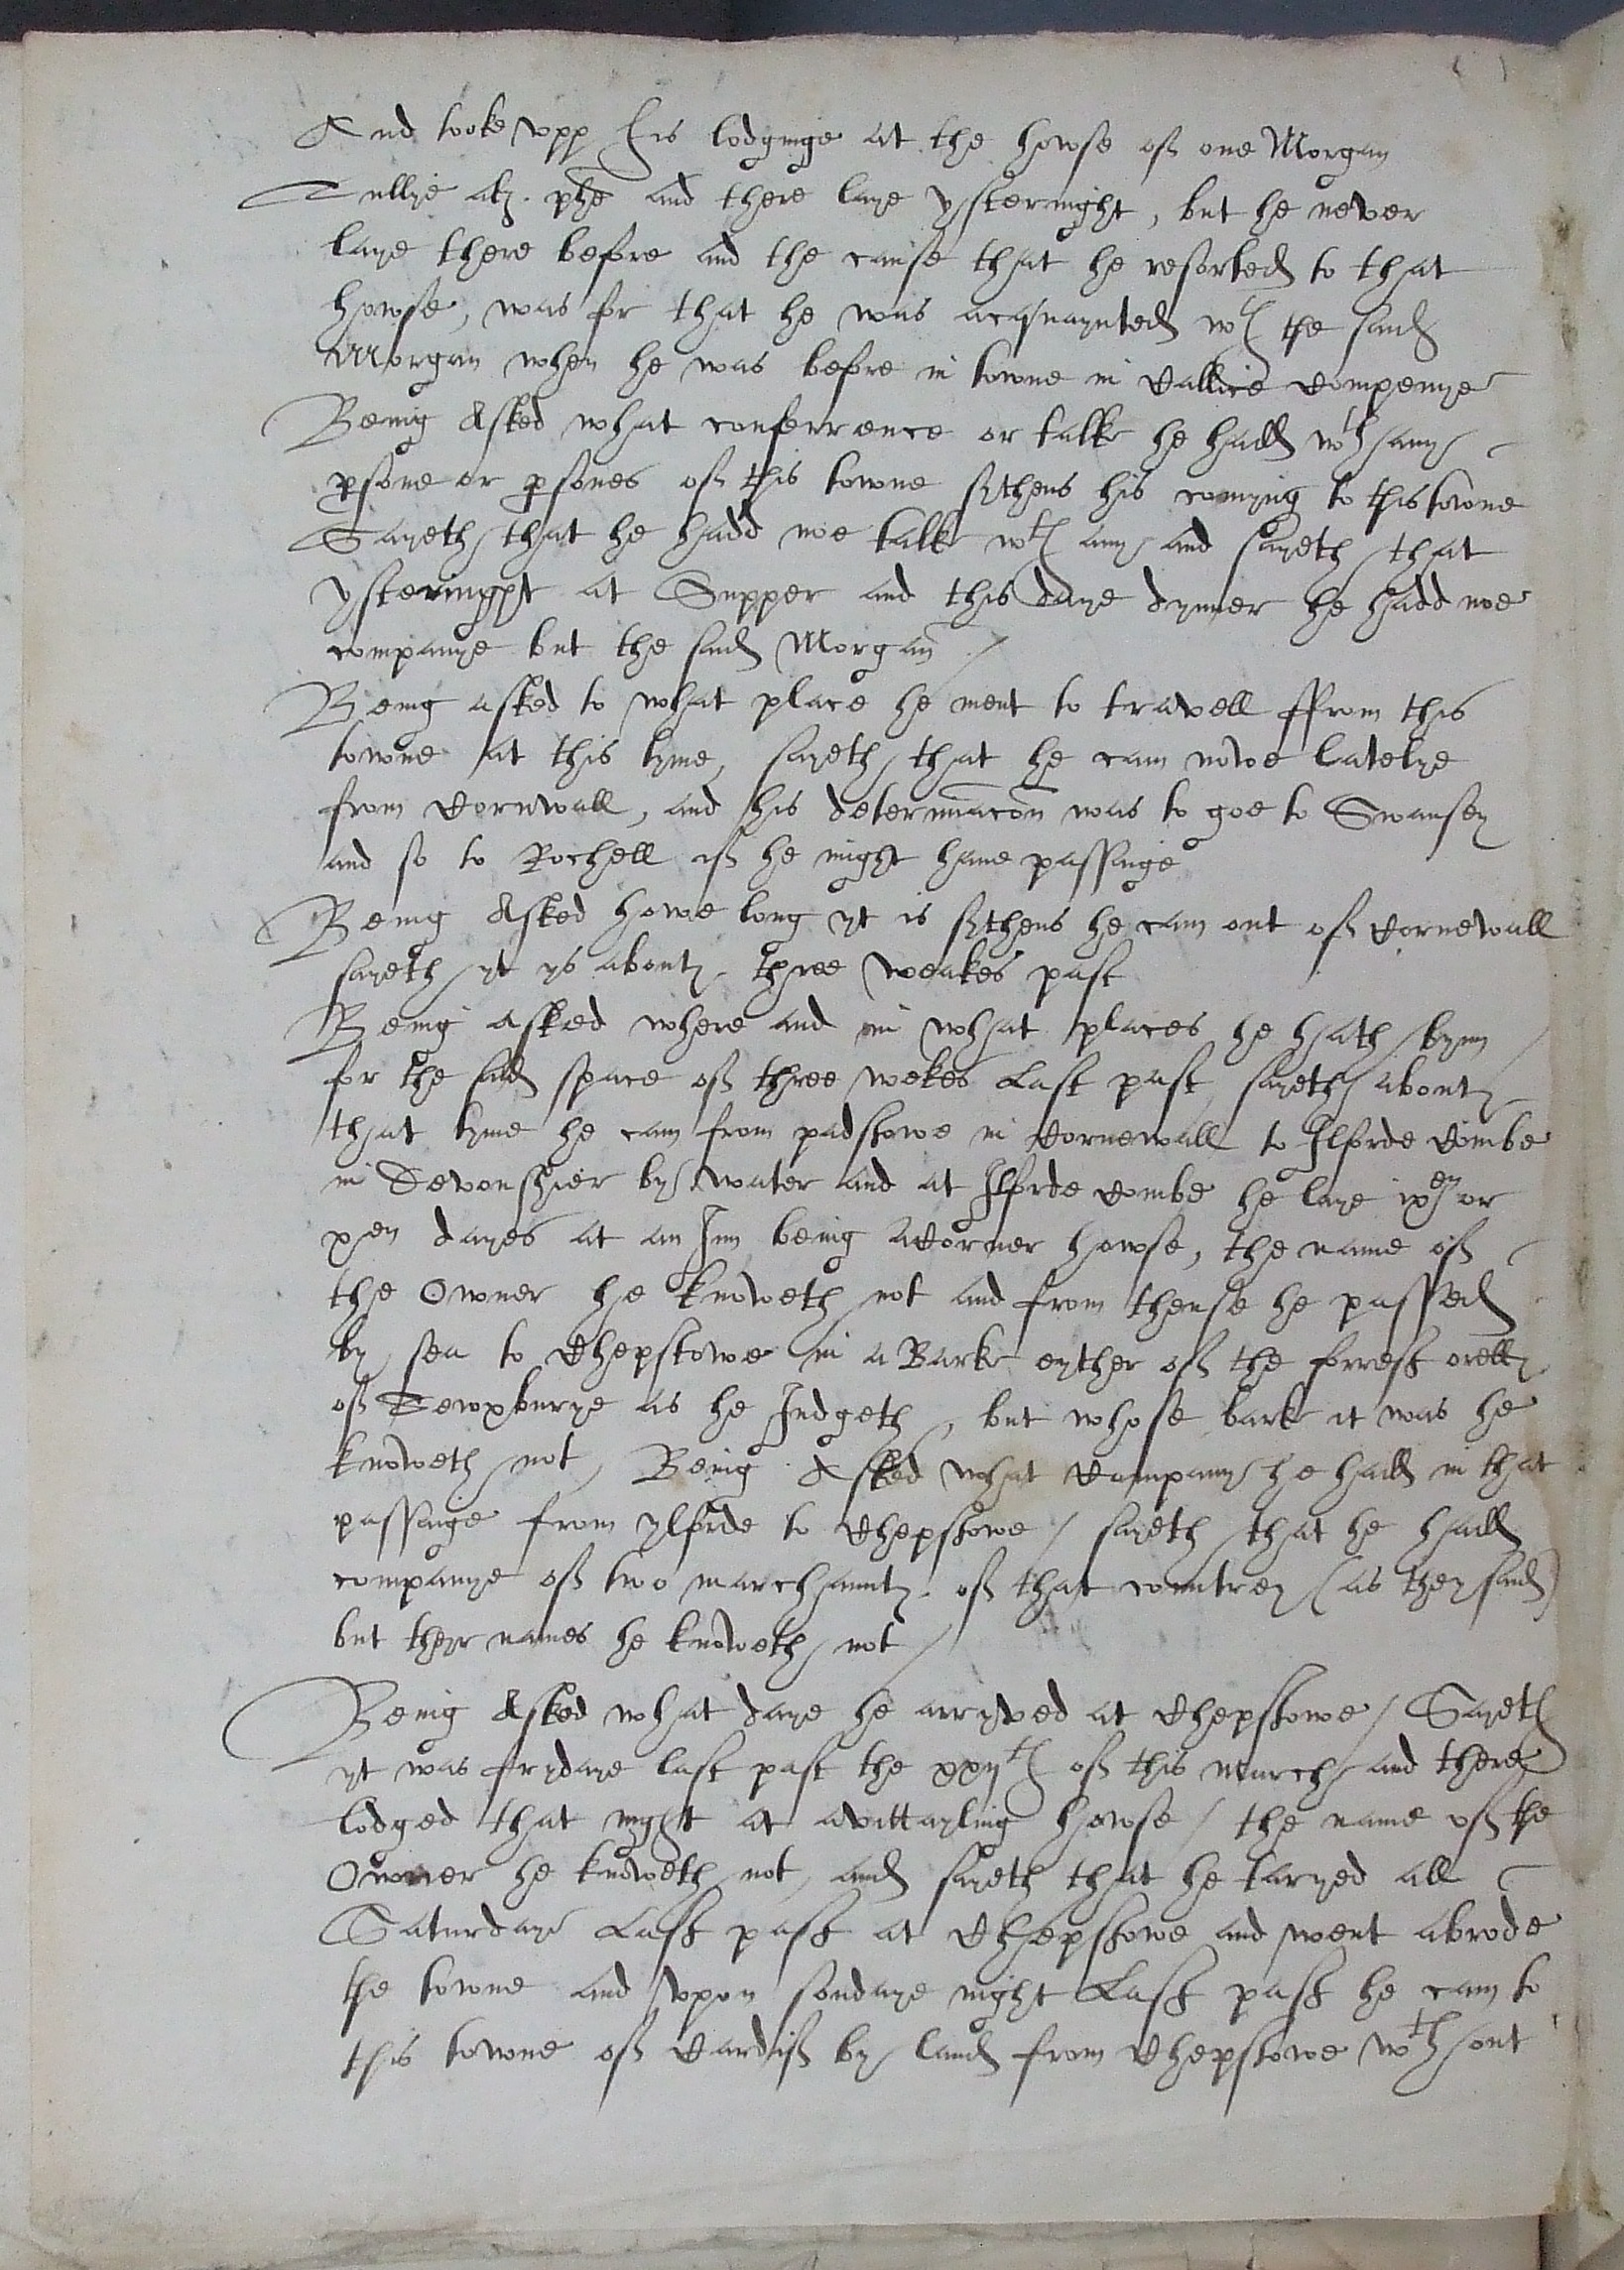 And tooke vpp his lodginge at the howse of one Morgan
Tullye alz. phe and there laye ysternight, but he never
laye there before and the cause that he resorted to that
howse, was for that he was acqnaynted wth the said
Morgan when he was before in towne in Callice Compenye
Being Asked what conferrence or talke he hadd wth any
psone or psones of this towne sythens his comyng to this towne
Sayeth that he hadd noe talke wth any and sayeth that
ysternight at Supper and this daye dynner he hadd noe
companye but the said Morgan /
Being asked to what place he ment to travell ffrom this
towne at this tyme, sayeth that he cam nowe latelye
from Cornwall, and his determinacon was to goe to Swansey
and so to Rochell if he might haue passaige
Being Asked howe long yt is sythens he cam out of Cornewall
sayeth yt ys about three weakes past
Being asked where and in what places he hath bynn
for the said space of three wekes Last past, sayeth about
that tyme he cam from padstowe in Cornewall to Ilforde Combe
in Devonshier by water and at Ilforde Combe he laye ixen or
xen dayes at an Inn being A Corner howse, the name of
the Owner he knoweth not and from thense he passed
by sea to Chepstowe in a Barke eyther of the forrest orells
of Tewxburye as he Judgeth, but whose bark it was he
knoweth not, Being Asked what Company he hadd in that
passaige from ylforde to Chepstowe / sayeth that he hadd
companye of two marchaunts of that countrey (as they said)
but theyr names he knoweth not /
Being Asked what daye he arryved at Chepstowe / Sayeth
yt was frydaye last past the xxijth of this March and there
lodged that night at a vittayling howse / the name of the
Owner he knoweth not, and sayeth that he taryed all
Saturdaye Last past at Chepstowe and went abrode
the towne and vpon sondaye night Last past he cam to
this towne of Cardif by land from Chepstowe wth out